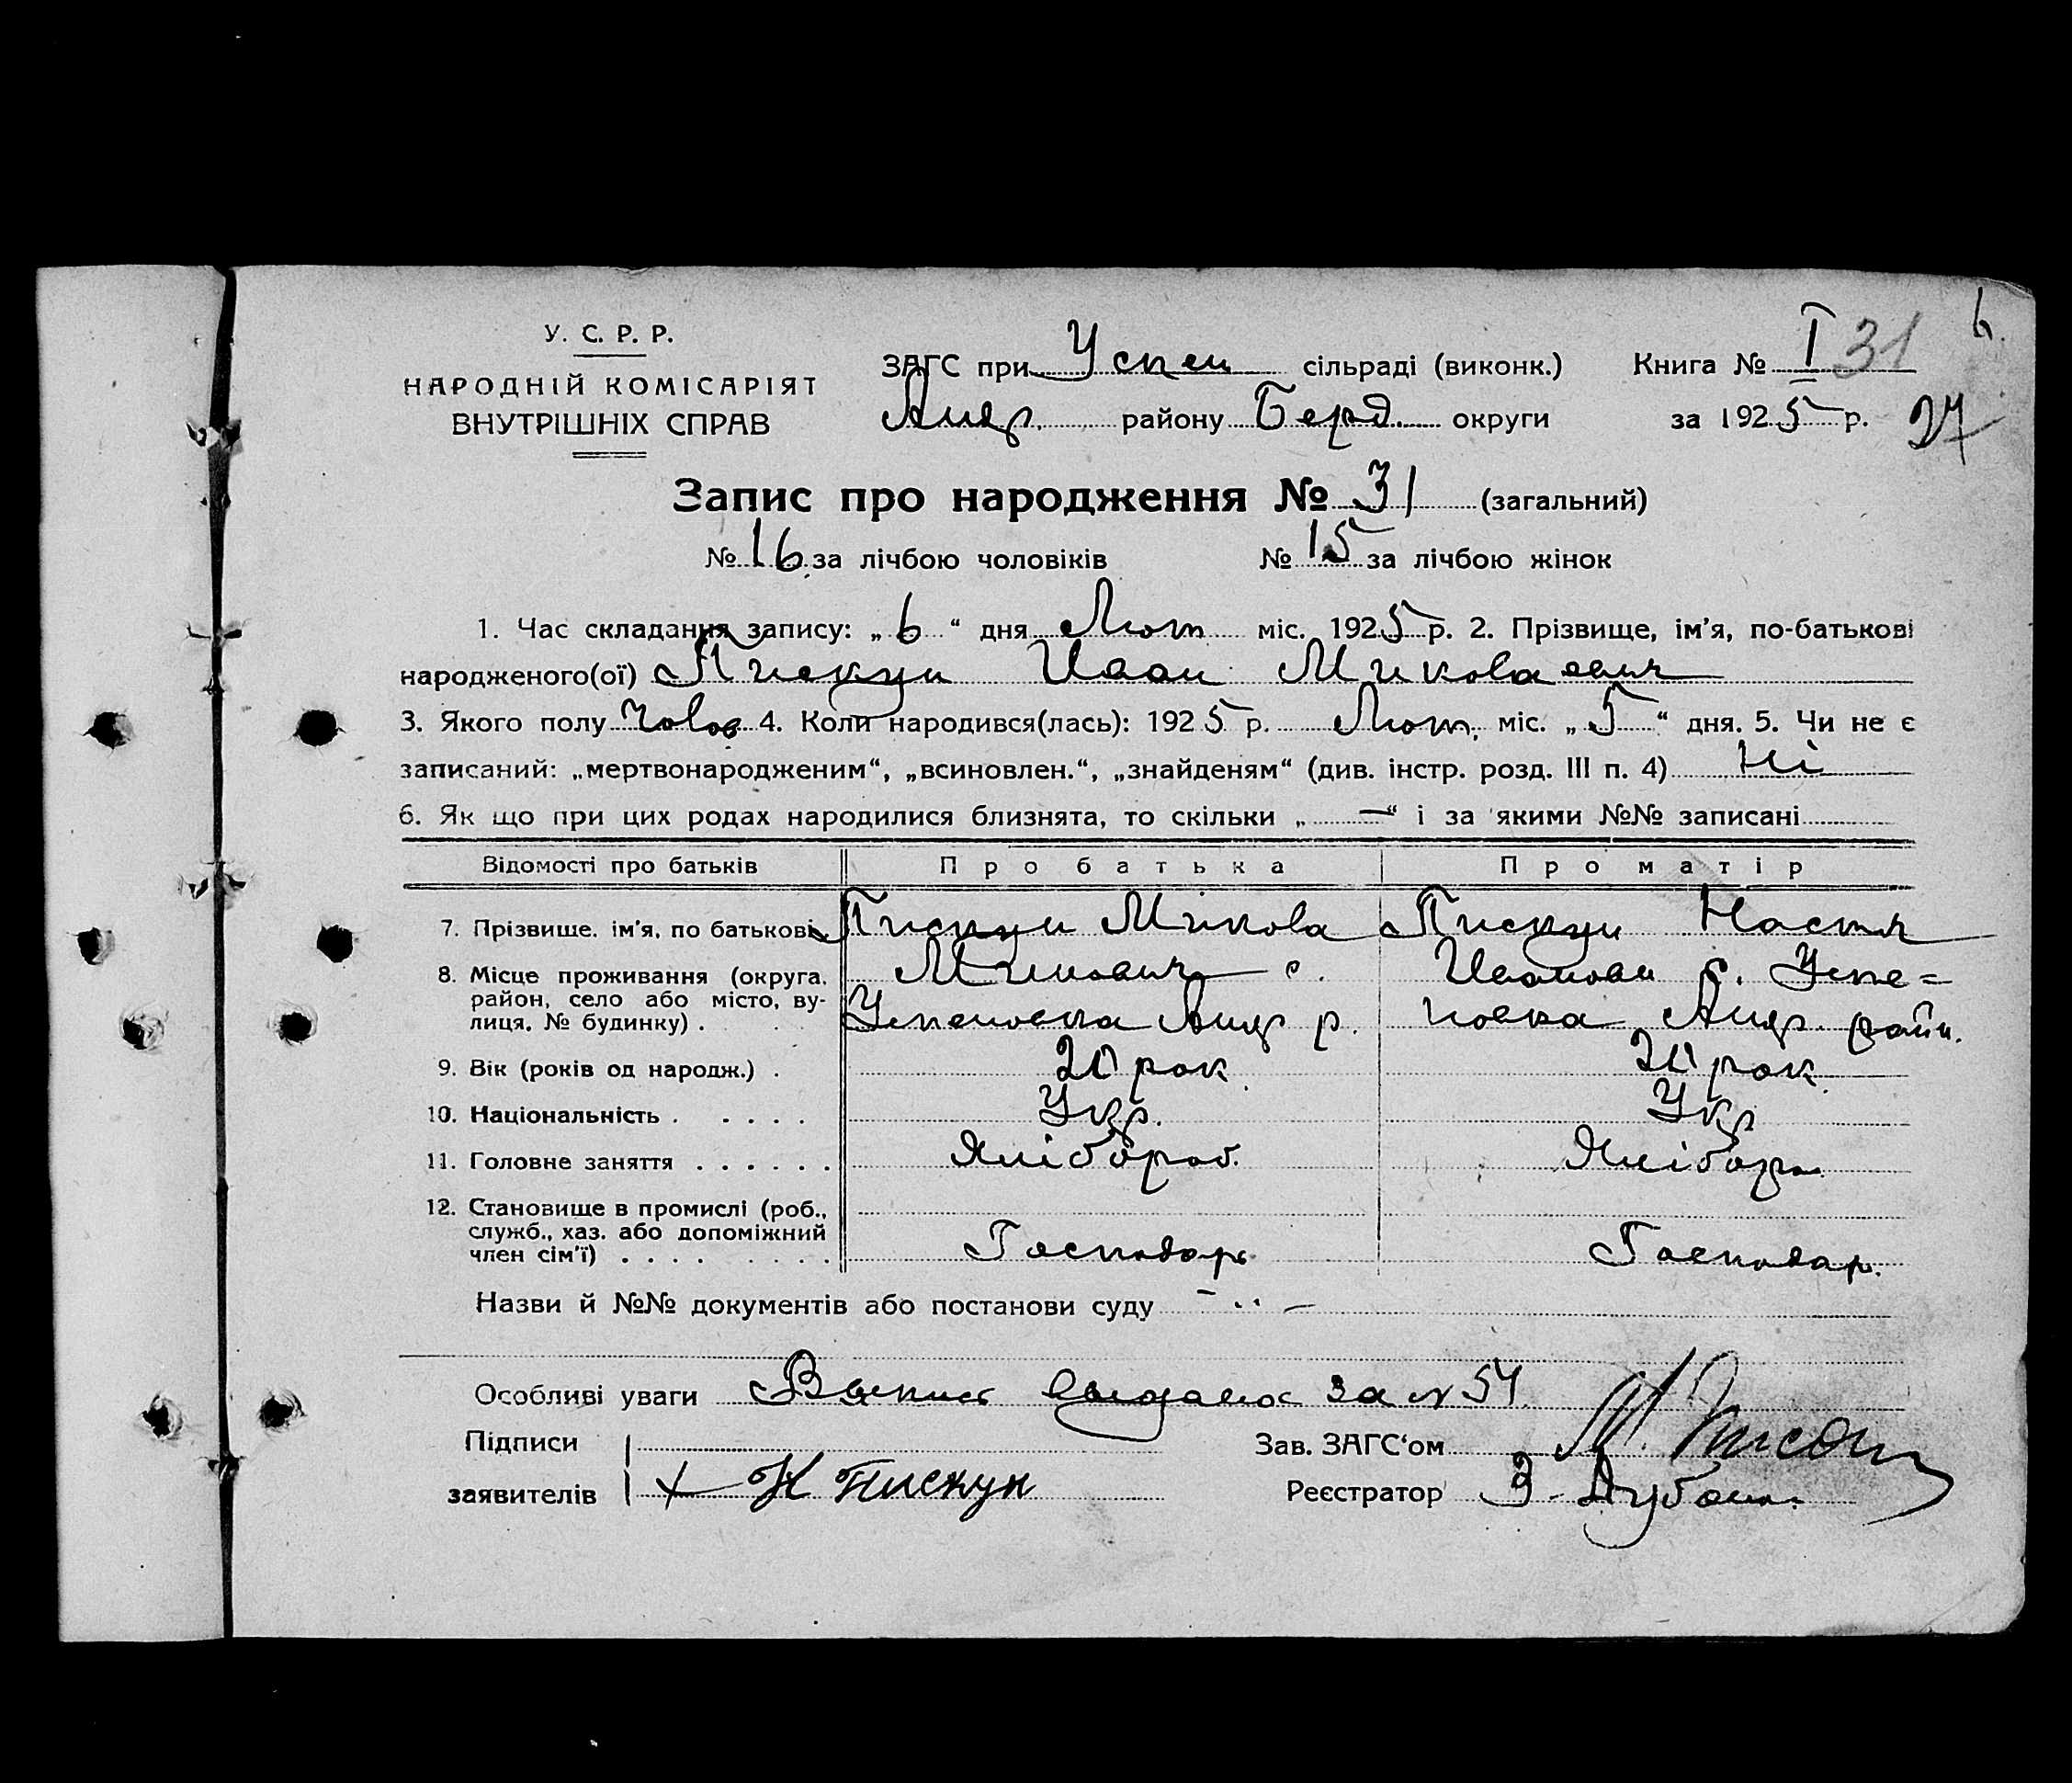 У. С. Р. Р.
НАРОДНІЙ КОМІСАРІЯТ
ВНУТРІШНІХ СПРАВ
ЗАГС при Успен сільраді (виконк.)
Андр. району Берд. округи
Книга № I 31
за 1925 р. 27
Запис про народження № 31 (загальний)
№ 16 за лічбою чоловіків № 15 за лічбою жінок
1. Час складання запису: „6“ дня Лют міс. 1925 р. 2. Прізвище, ім'я, по-батькові
народженого(ої) Пискун Иван Миколаевич
3. Якого полу Чолов 4. Коли народився(лась): 1925 р. Лют. міс. „5“ дня. 5. Чи не є
записаний: „мертвонародженим“, „всиновлен.“, „знайденям“ (див. інстр. розд. III п. 4) Ні
6. Як що при цих родах народилися близнята, то скільки „—“ і за якими №№ записані
Відомості про батьків Про батька Про матір
7. Прізвище. ім'я, по батькові Пискун Микола Пискун Настя
8. Місце проживання (округа. район, село або місто, вулиця, № будинку) . с. Ивановн с. Успе=
Успеновка Андр р. новка Андр. райн.
9. Вік (років од народж.) . 20 рок 20 рок
10. Національність . . . . . Укр. Укр
11. Головне заняття . . . . . . Хлібороб. Хлібор.
12. Становище в промислі (роб., служб., хаз. або допоміжний член сім'ї) . . . . . . . . Господарь Господар.
Назви й №№ документів або постанови суду
Особливі уваги Выпись выдана за № 54
Підписи
заявителів + Н Пискун
Зав. ЗАГС'ом
Реєстратор З.